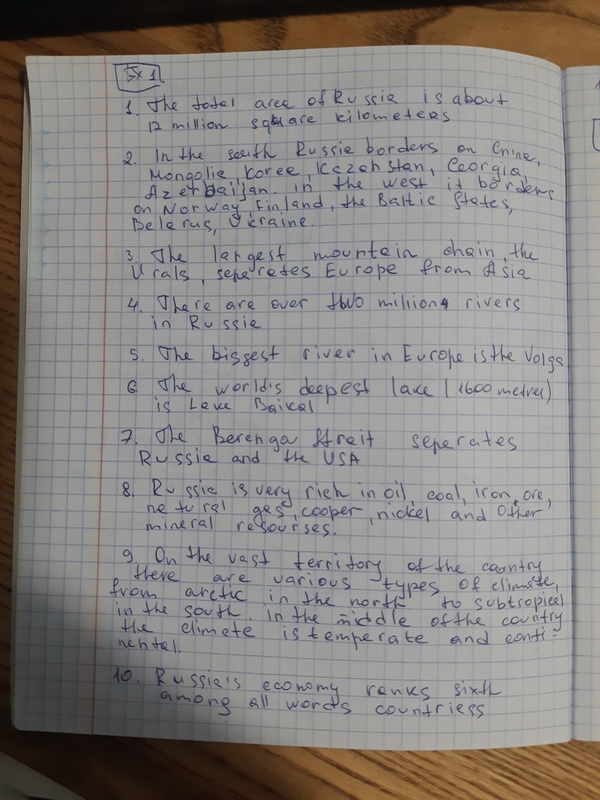 Ex 1.
1. The total area of Russia is about
12 million square kilometers
2. In the south Russia borders on China,
Mongolia, Korea, Kazahstan, Georgia,
Azerbaijan. in the west it borders
on Norway, Finland, the Baltic States,
Belarus, Ukraine.
3. The largest mountain chain, the
Urals, separates Europe from Asia
4. There are over two million rivers
in Russia
5. The biggest river in Europe is the Volga
6. The world's deepest lake (1600 metres)
is Lake Baikal
7. The Berenga Strait separates
Russia and the USA
8. Russia is very rich in oil, coal, iron, ore,
natural gas, cooper, nickel and other
mineral resourses.
9. On the vast territory of the country
there are various types of climate,
from arctic in the north to subtropical
in the south. In the middle of the country
the climate is temperate and conti-
nental.
10. Russia's economy ranks sixth
among all words countriess